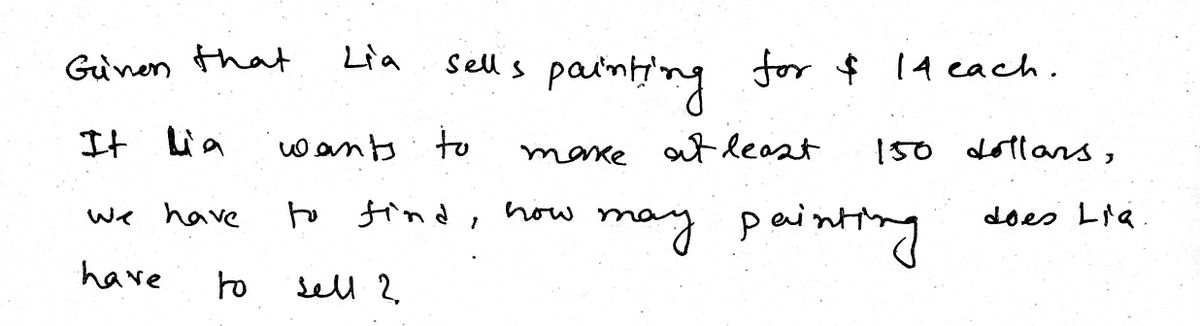 Given that Lia sells painting for $ 14 each.
If Lia wants to make at least 150 dollars,
we have to find, how may painting does Lia
have to sell ?